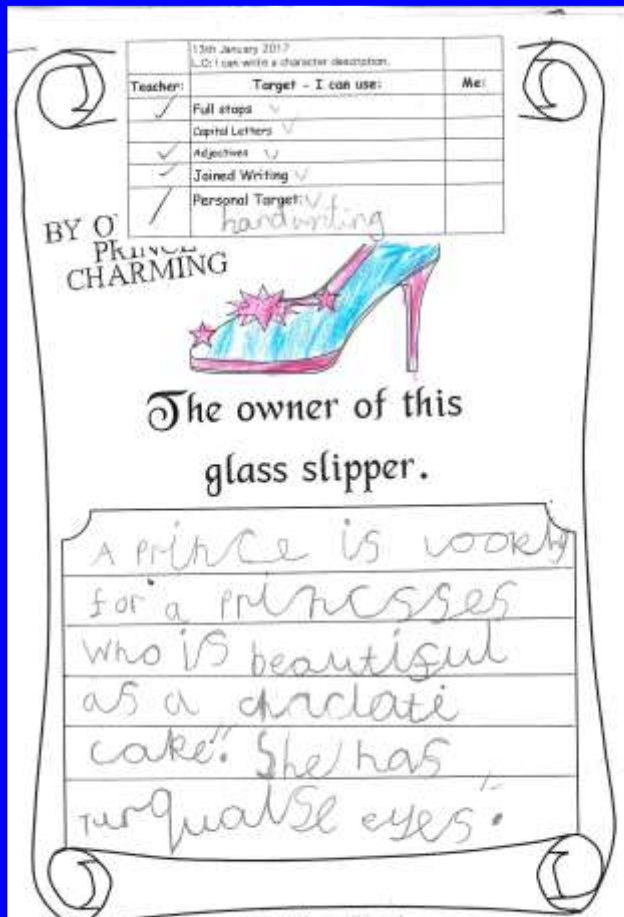 13th January 2017
L.O: I can write a character description.
Teacher: Target - I can use: Me:
Full stops
Capital Letters
Adjectives
Joined Writing
Personal Target:
handwriting
BY O
PRINCE
CHARMING
The owner of this
glass slipper.
A prince is
for a princsses
who is beautiful
as a
cake. She has
Turqualse eyes.